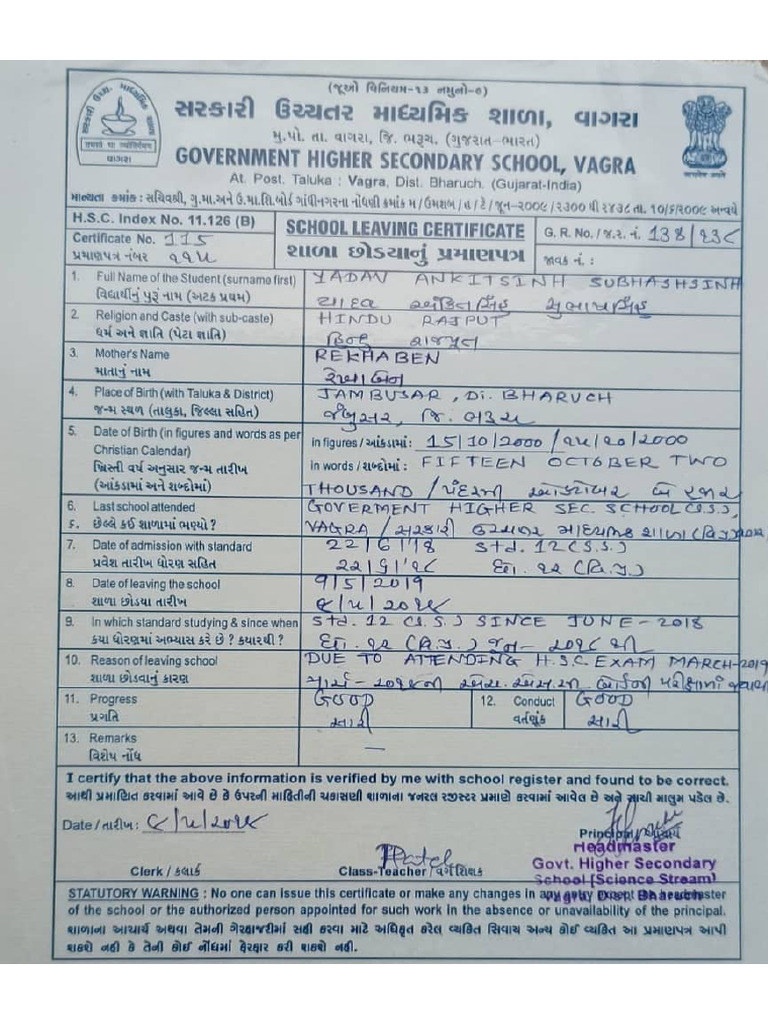 (જૂઓ વિનિયમ-૧૩ નમુનો-૭)
સરકારી ઉચ્ચતર માધ્યમિક શાળા, વાગરા
મુ.પો. તા. વાગરા, જિ. ભરૂચ. (ગુજરાત-ભારત)
GOVERNMENT HIGHER SECONDARY SCHOOL, VAGRA
At. Post. Taluka : Vagra, Dist. Bharuch. (Gujarat-India)
વાગરા
માન્યતા ક્રમાંક : સચિવશ્રી, ગુ.મા.અને ઉ.મા.શિ.બોર્ડ ગાંધીનગરના નોંધણી ક્રમાંક મ / ઉમશબ / ત / ટે / જૂન-૨૦૦૯ / ૨૩૦૦ થી ૨૪૩૮ તા. ૧૦/૬/૨૦૦૯ અન્વયે
H.S.C. Index No. 11.126 (B)
SCHOOL LEAVING CERTIFICATE
G. R. No. / જ.ર. નં. 138 / ૧૩૮
Certificate No. 115
પ્રમાણપત્ર નંબર ૧૧૫
શાળા છોડયાનું પ્રમાણપત્ર
જાવક નં. :
1. Full Name of the Student (surname first) YADAV ANKITSINH SUBHASHSINH
વિદ્યાર્થીનું પુરૂં નામ (અટક પ્રથમ) યાદવ અંકિતસિંહ સુભાષસિંહ
2. Religion and Caste (with sub-caste) HINDU RAJPUT
ધર્મ અને જ્ઞાતિ (પેટા જ્ઞાતિ) હિન્દુ રાજપૂત
3. Mother's Name REKHABEN
માતાનું નામ રેખાબેન
4. Place of Birth (with Taluka & District) JAMBUSAR, Di. BHARUCH
જન્મ સ્થળ (તાલુકા, જિલ્લા સહિત) જંબુસર, જિ. ભરૂચ
5. Date of Birth (in figures and words as per in figures / આંકડામાં : 15/10/2000 / ૧૫/૧૦/2000
Christian Calendar) in words / શબ્દોમાં : FIFTEEN OCTOBER TWO
ખ્રિસ્તી વર્ષ અનુસાર જન્મ તારીખ
(આંકડામાં અને શબ્દોમાં) THOUSAND / પંદરમી ઓક્ટોબર બે હજાર
6. Last school attended GOVERMENT HIGHER SEC. SCHOOL (S.S.),
૬. છેલ્લે કઈ શાળામાં ભણ્યો ? VAGRA / સરકારી ઉચ્ચતર માધ્યમિક શાળા (વિ.પ્ર.)
7. Date of admission with standard 22/6/'18 Std. 12 (S.S.)
પ્રવેશ તારીખ ધોરણ સહિત ૨૨/૬/'૧૮ ધો. ૧૨ (વિ.પ્ર.)
8. Date of leaving the school 9/5/2019
શાળા છોડયા તારીખ ૯/૫/૨૦૧૯
9. In which standard studying & since when Std. 12 (S.S.) SINCE JUNE-2018
કયા ધોરણમાં અભ્યાસ કરે છે ? કયારથી ? ધો. ૧૨ (વિ.પ્ર.) જૂન - ૨૦૧૮ થી
10. Reason of leaving school DUE TO ATTENDING H.S.C. EXAM MARCH-2019
શાળા છોડવાનું કારણ માર્ચ - ૨૦૧૯ની એચ. એસ.સી. બોર્ડની પરીક્ષામાં જવાથી
11. Progress GOOD 12. Conduct GOOD
પ્રગતિ સારી વર્તણૂંક સારી
13. Remarks —
વિશેષ નોંધ
I certify that the above information is verified by me with school register and found to be correct.
આથી પ્રમાણિત કરવામાં આવે છે કે ઉપરની માહિતીની ચકાસણી શાળાના જનરલ રજીસ્ટર પ્રમાણે કરવામાં આવેલ છે અને સાચી માલુમ પડેલ છે.
Date / તારીખ : ૯/૫/૨૦૧૯
Principal
Headmaster
Clerk / કલાર્ક
Patel
Class-Teacher / વર્ગ શિક્ષક
Govt. Higher Secondary
School [Science Stream]
Vagra Dist. Bharuch
STATUTORY WARNING : No one can issue this certificate or make any changes in any entry except the headmaster
of the school or the authorized person appointed for such work in the absence or unavailability of the principal.
શાળાના આચાર્ય અથવા તેમની ગેરહાજરીમાં સહી કરવા માટે અધિકૃત કરેલ વ્યકિત સિવાય અન્ય કોઈ વ્યકિત આ પ્રમાણપત્ર આપી
શકશે નહી કે તેની કોઈ નોંધમાં ફેરફાર કરી શકશે નહી.